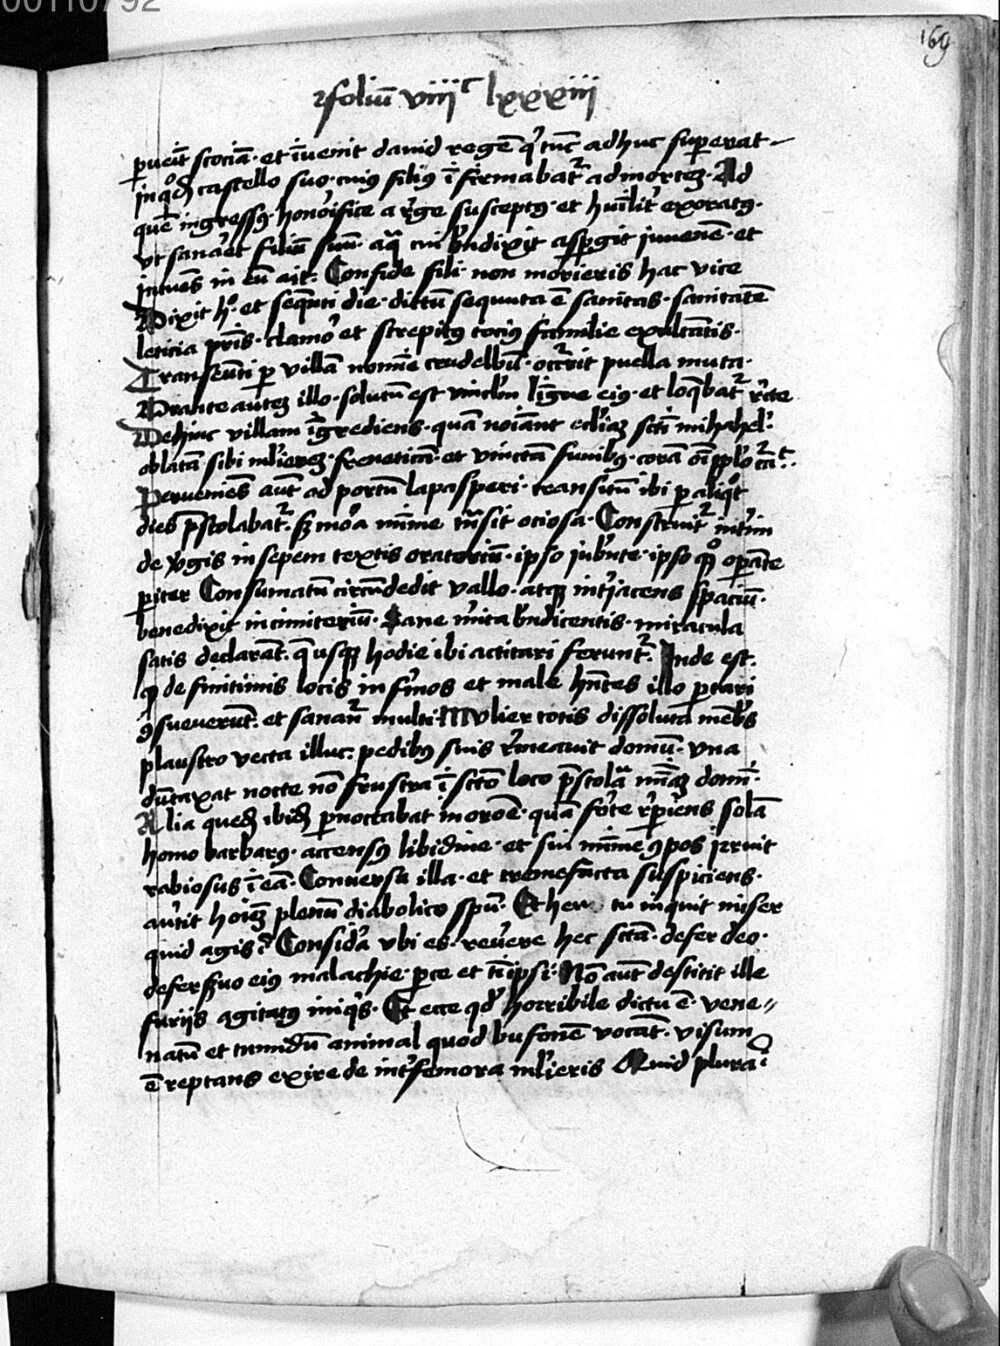 00110792
169
2folium viiijc lxxxiiij
pueit scociā· et īuenit dauid regē q' tūc adhuc superat
in q°dā castello suo· cuiꝰ filiꝰ īfirmabat᷑ ad mortē· Ad
quē ingressꝰ· honorifice a rege susceptꝰ· et huilit' exoratꝰ·
vt sanaret filiū suū· aq̄ cui bn̄dixit aspgit juuenē· et
intuēs in eū ait: Confide fili· non morieris hac vice
Dixit h°· et seqn̄ti die· dictū sequuta ē sanitas· sanitatē
leticia pris· clamor et strepitꝰ tociꝰ familie exultātis·
Transeūti p villā noīe crudelbū· occ'rit puella muta·
Orante autē illo· solutū est vincl'm līgue eiꝰ· et loqbat᷑ r'cte
Dehinc villam īgrediens· quā noīant eccl'iaꝫ scti mihahel'·
oblatā sibi ml'ierē· freneticā· et vinctā funibꝰ· corā oī pplo ca't·
Perueniēs aut ad portū lapasperi· transitū ibi p aliq°t
dies p̄stolabat᷑· sꝫ mora mīme tn̄sit ociosa· Construit᷑ int'im
de v'gis in sepem textis oratoriū· ipso jubēte· ipso q°ꝫ opāte
piter Consumatū circūdedit vallo· atqꝫ int'jacens spaciū·
benedixit in cimiteriū· Sane m'ita bn̄dicentis· miracula
satis declarāt· q̄ usqꝫ hodie ibi actitari ferunt᷑· Inde est·
ꝙ de finitimis locis infirmos et male hn̄tes illo portari
ꝯsueuerūt· et sanan᷑ multi· Mulier totis dissoluta mēbris
plaustro vecta illuc· pedibꝰ suis r'meauit domū· vna
dūtaxat nocte nō frustra ī scto loco p̄stolā miāꝫ domī·
Alia quedā ibidē pnoctabat in oroē· quā forte r'piens solā
homo barbarꝰ· accensꝰ libidine· et sui mīme ꝯpos jrruit
rabiosus ī eā· Conuersa illa· et tremefacta suspiciens·
au'tit hoīeꝫ plenū diabolico spū· Et heu tu inquit miser
quid agis? Consid'a vbi es· reuere hec scta· defer deo·
defer suo eiꝰ malachie· pce et tibi ipsi· Nō aut destitit ille
furijs agitatꝰ iniq's· Et ecce qd' horribile dictu ē· vene〃
natū et tumidū animal quod bufonē vocāt· visum
ē reptans exire de int' femora ml'ieris Quid plura?